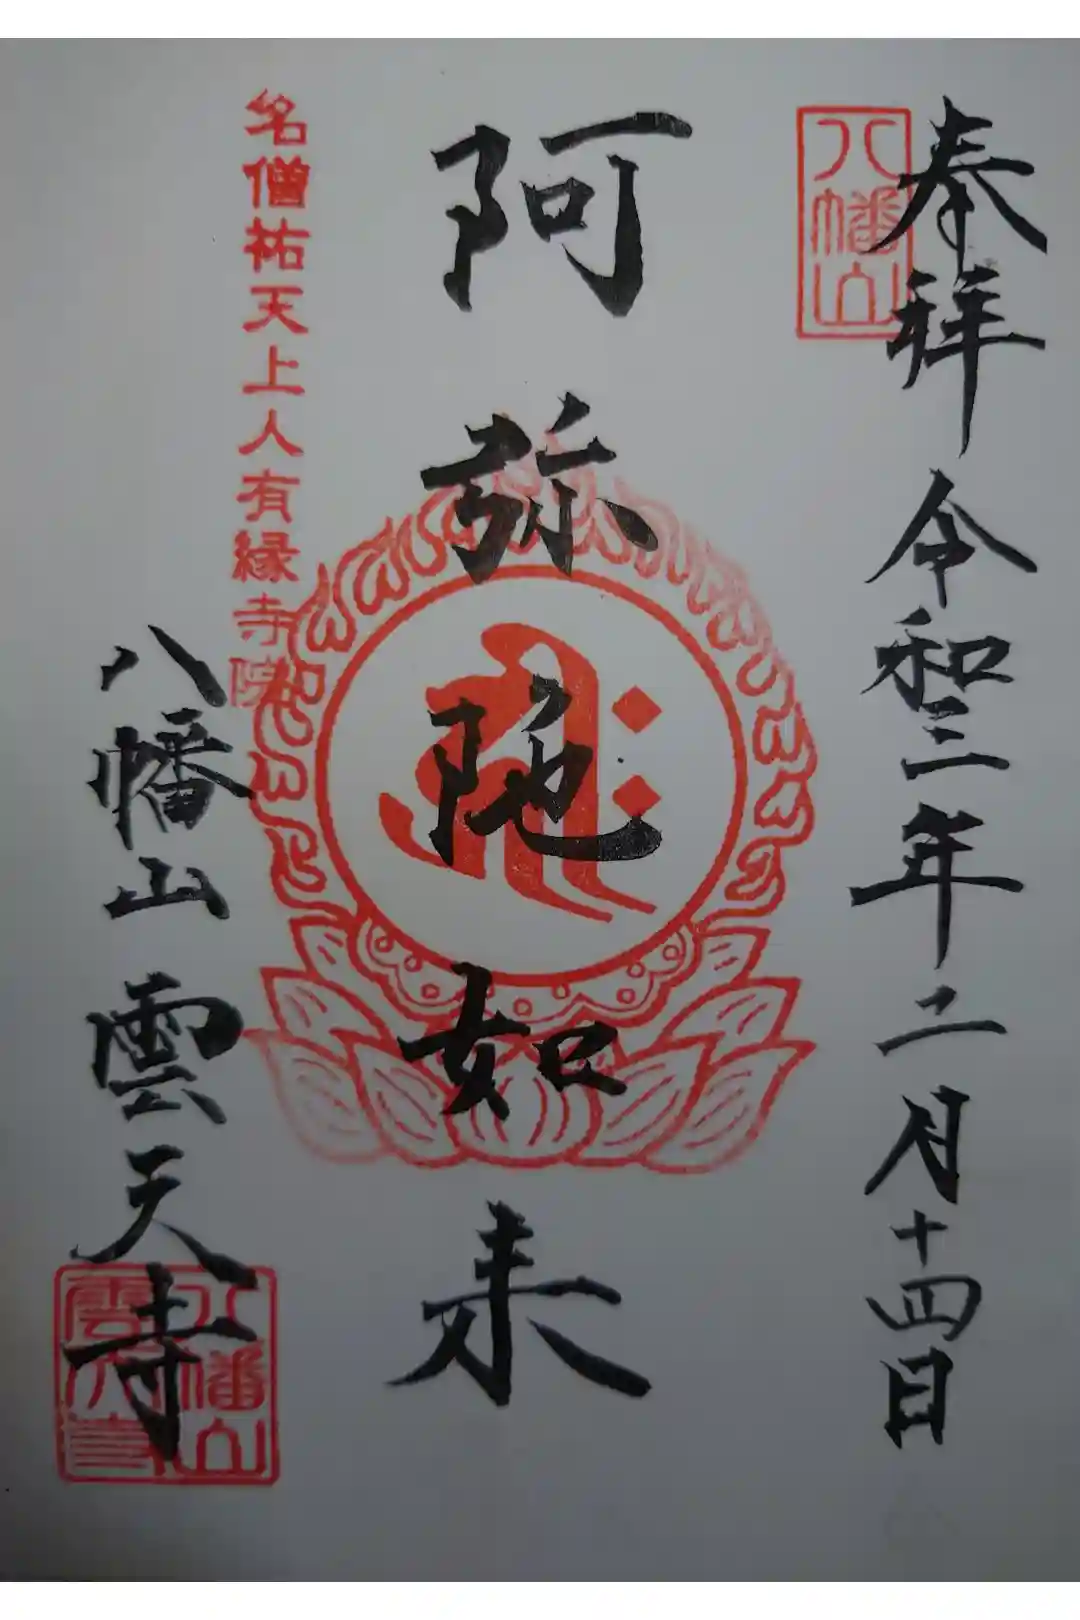 奉拝 令和三年二月十四日
八幡山
阿弥陀如来
名僧祐天上人有縁寺院
八幡山 雲天寺
八幡山
雲天寺